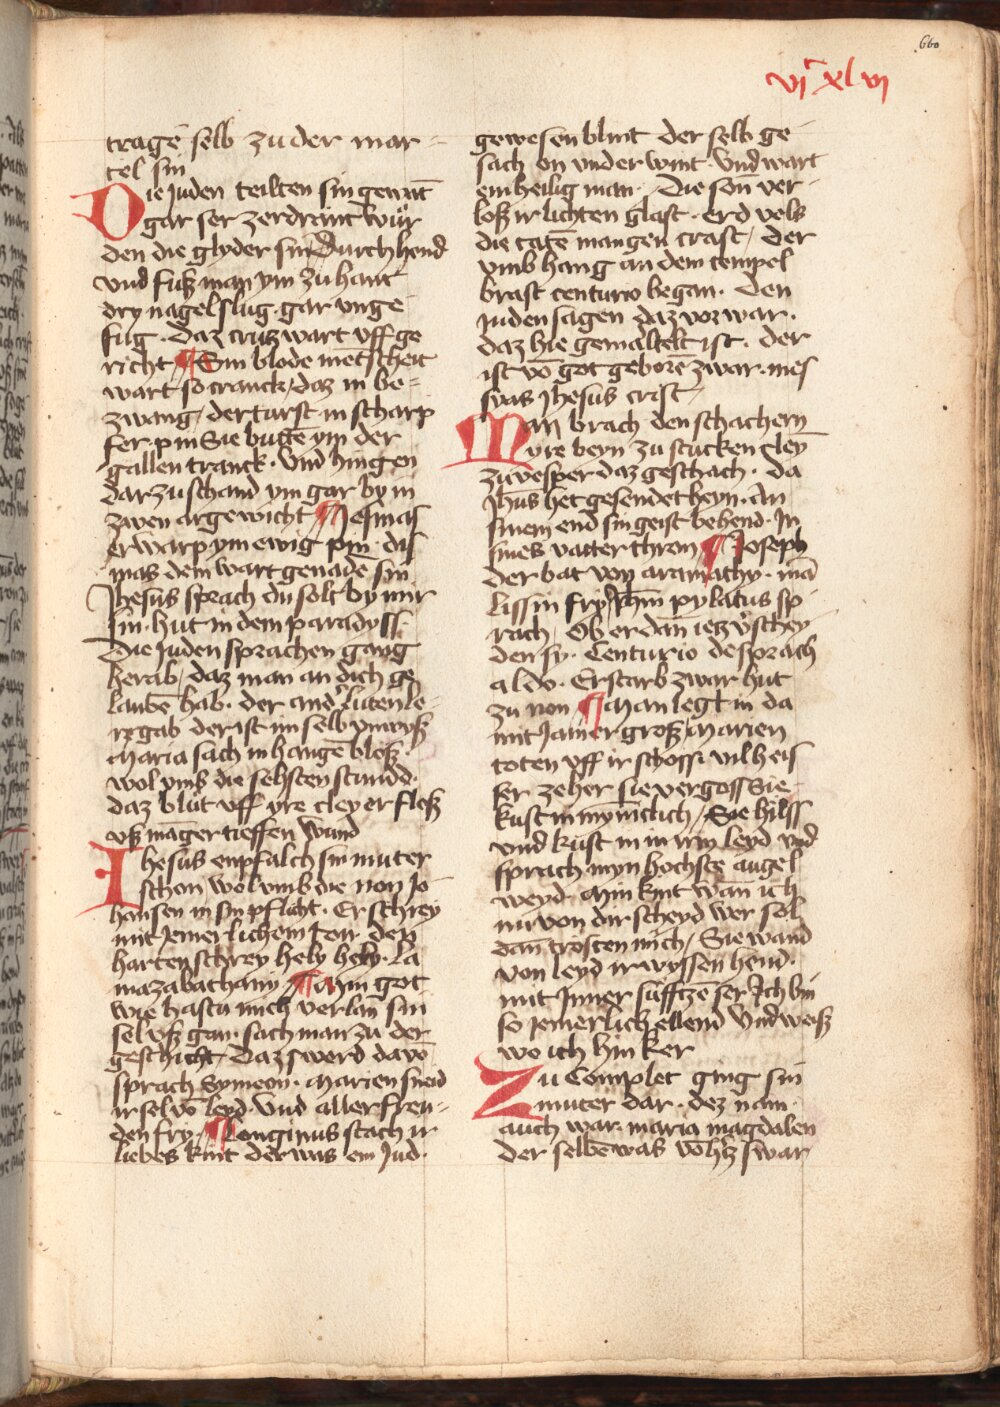 660
vjc xl vj
tragē selb zu der mar-
tel sin
Die Juden teilten sin gewāt
gar ser zerdränt wür
den die glyder sin Durch hend
vnd fusz man ym zu hant
dry nagel slug. gar vnge-
fug. daz crütz wart vff ge
richt ¶ Sin blöde mētscheit
wart so cranck / daz in be-
zwang / der turst in scharp
fer pin Sie buttē ym der
gallen tranck. Vnd hingen
dar zu schand ym gar by in
zwen argewicht ¶ Jesmas
erwarp ym ewig pin. dis
mas dem wart genade sin
Jhesus sprach du solt by mir
sin. hut in dem paradyss.
Die Juden sprachen gang
herab / daz man an dich ge
laubē hab. der and' lüten le-
gab der ist im selb
Maria sach in hangē blosz
wol vmb die sehsten stund.
daz blut vff yre cleyer flosz
vsz māger tieffen wund
Jhesus enpfalch sin muter
schon wol vmb die non Jo
hansen in sin pflicht. Er schrey
mit Jemerlichem ton den
harten schrey hely hely. la
mazabathany ¶ Myn got
wie hastu mich verlan sin
sel vsz gan. sach man zu der
geschicht. Daz swerd davō
sprach Symeon. Marien sneid
ir sel vō leyd. Vnd aller freu-
den fry. ¶ Longinus stach ir
liebes kint der was ein Jud.
gewesen blint der selb ge-
sach on vnder wint. Vnd wart
ein heilig man. Die son ver-
losz ir lichten glast. erd vels
die tatē mangen crast / Der
vmb hang an dem tempel
brast centurio began. Den
Juden sagen daz vor war.
daz hie gemaltelt ist. der
ist vō got geborē zwar. mes
syas Jhesus crist
Man brach den schachern
yre beyn zu stucken cleyn
zu vesper daz geschach. da
Jhus het gesendet heyn. An
sinem end sin geist behend. In
sines vatter thron ¶ Joseph
der bat von aramathy. mā
liss in fry pylatus sp-
rach / Ob er dan ietz v'schey
den sy. Centurio de sprach
aldo. Er starb zwar hut
zu non ¶ Man legt in da
mit Jamer grosz Marien
toten vff ir schoss. vil heis
ser zeher sie vergoss Sie
kust in mynniclich / Sie hilss
vnd kust in in irm leyd vnd
sprach myn hochste augel
weyd. Min kint wan ich
mir von dir scheyd wer sol
dan trosten mich / Sie wand
von leyd ir wyssen hend.
mit Jnner süfftzē ser Ich bin
so Jemerlich ellend Vnd weisz
wo ich hin ker
Zu Complet ging sin
muter dar. dez nam
auch war. maria magdalen
der selbē was vō h'tz swar